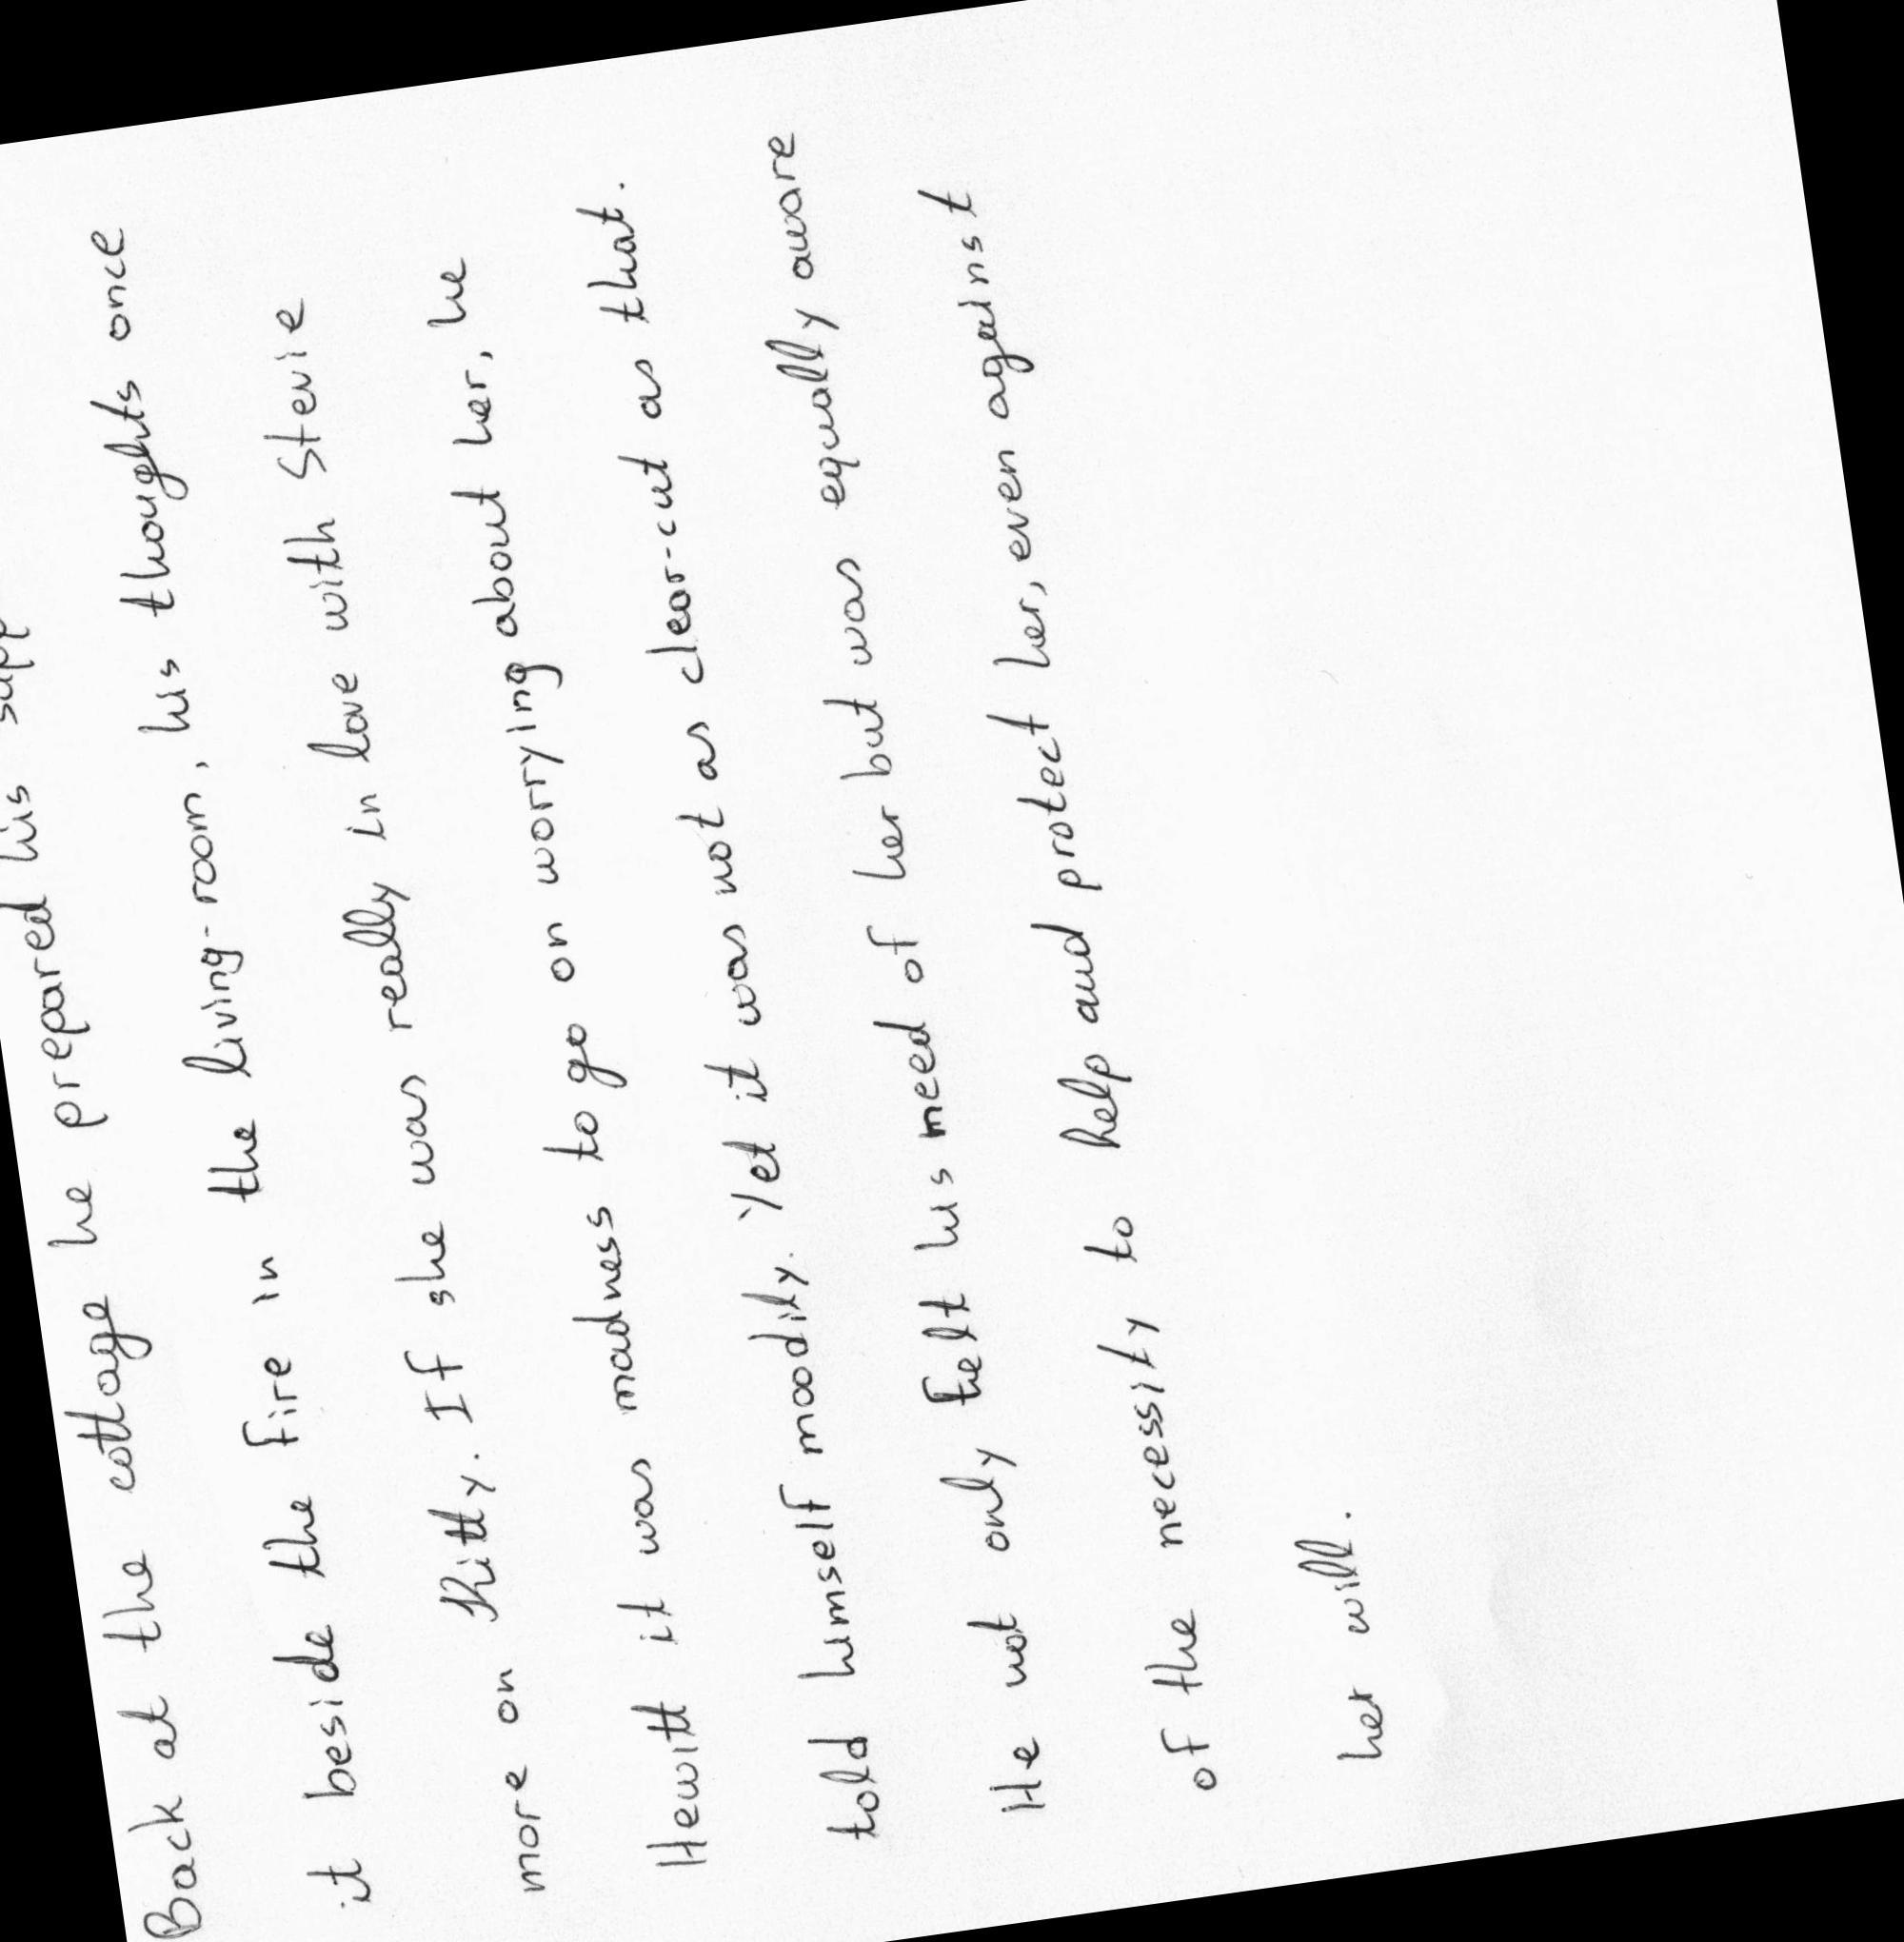 Back at the cottage he prepared his
it beside the fire in the living-room, his thoughts once
more on Kitty. If she was really in love with Stevie
Hewitt it was madness to go on worrying about her, he
told himself moodily. Yet it was not as clear-cut as that.
He not only felt his need of her but was equally aware
of the necessity to help and protect her, even against
her will.